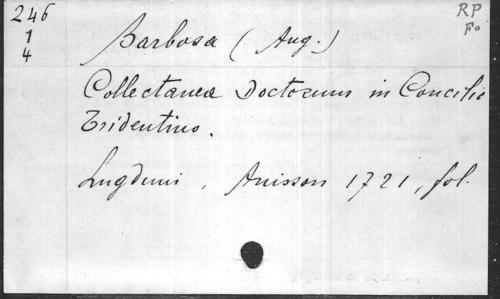 246
1
4
RP
Fo
Barbosa (Aug.)
Collectanea Doctorum in Concilio
Tridentino.
Lugduni, Anisson 1721, fol.